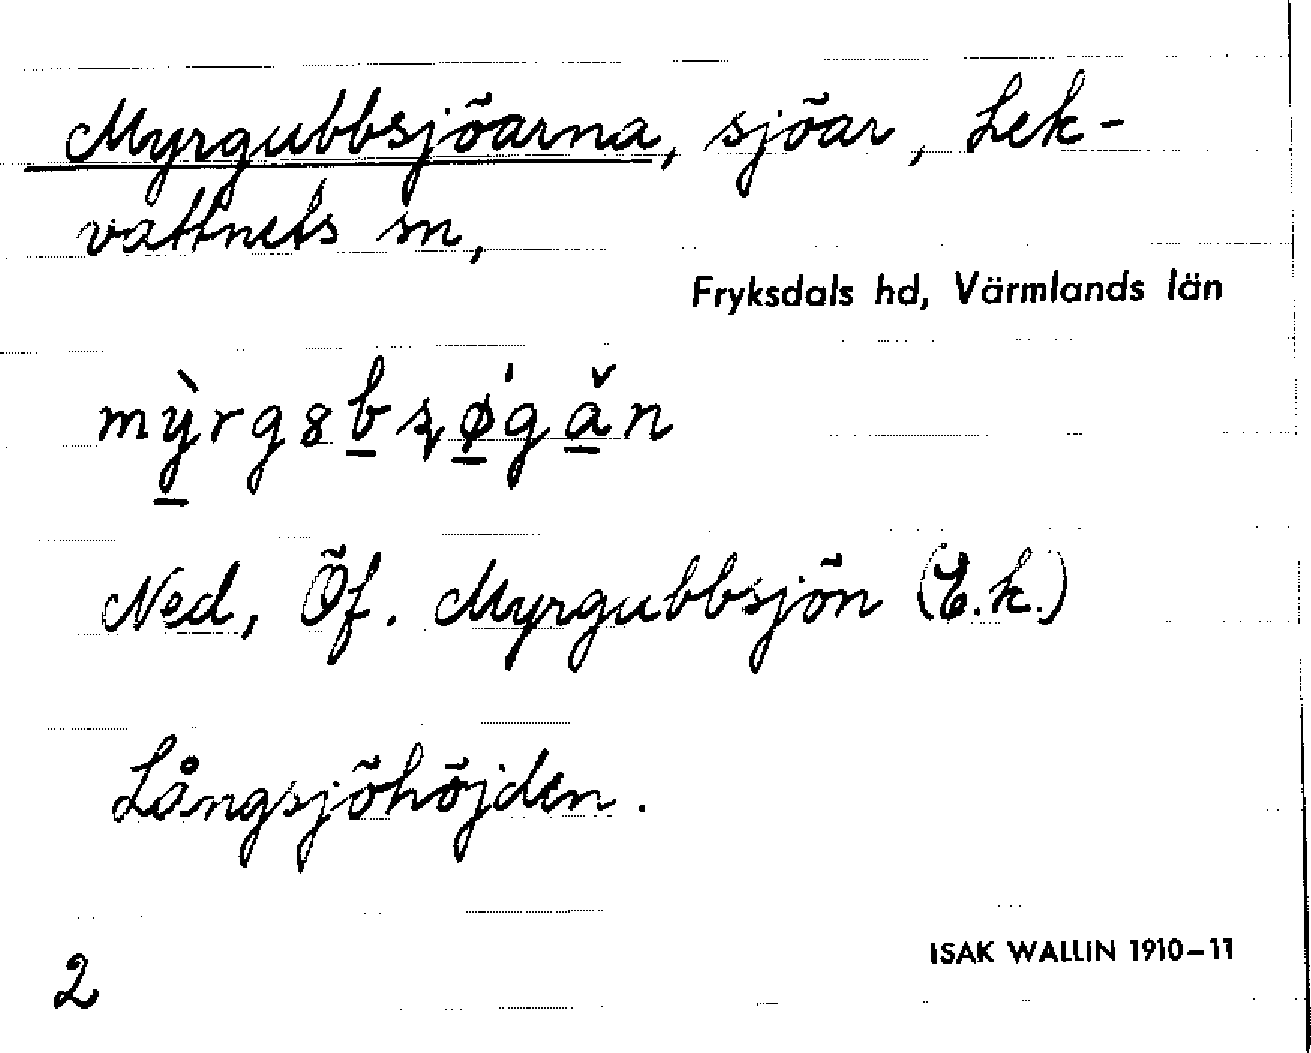 Myrgubbsjöarna, sjöar, Lek-
vattnets sn,
Fryksdals hd, Värmlands län
Ned, Öf. Myrgubbsjön (E.k.)
Långsjöhöjden.
ISAK WALLIN 1910-11
2